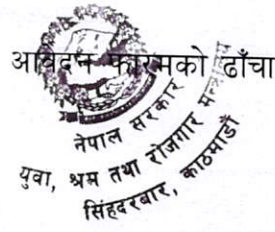 आवेदन फारमको ढाँचा
नेपाल सरकार
युवा, श्रम तथा रोजगार मन्त्रालय
सिंहदरबार, काठमाडौं